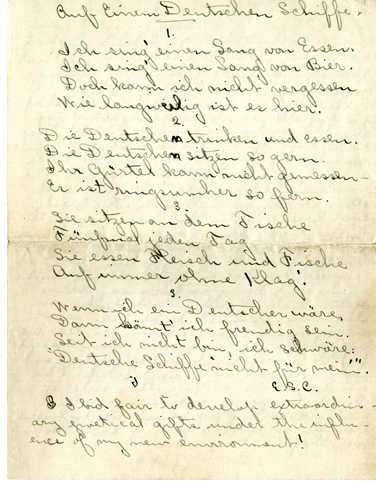 Auf Einem Deutschen Schiffe.
1.
Ich sing' einen Sang von Essen.
Ich sing' einen Sang von Bier.
Doch kann ich nicht vergessen
Wie langweilig ist es hier.
2.
Die Deutschen trinken und essen.
Die Deutschen sitzen so gern.
Ihr Gürtel kann nicht gemessen –
Er ist ringsumher so fern.
3.
Sie sitzen an dem Tische
Fünfmal jeden Tag
Sie essen Fleisch und Fische
Auf immer ohne Klag'.
3.
Wenn ich ein Deutscher wäre,
Dann könnt' ich freudig sein.
Seit ich nicht bin, ich schwäre:
"Deutsche Schiffe nicht für mein".
E.S.C.
I bid fair to develop extraordin-
ary poetical gifts under the influ-
ence of my new environment!